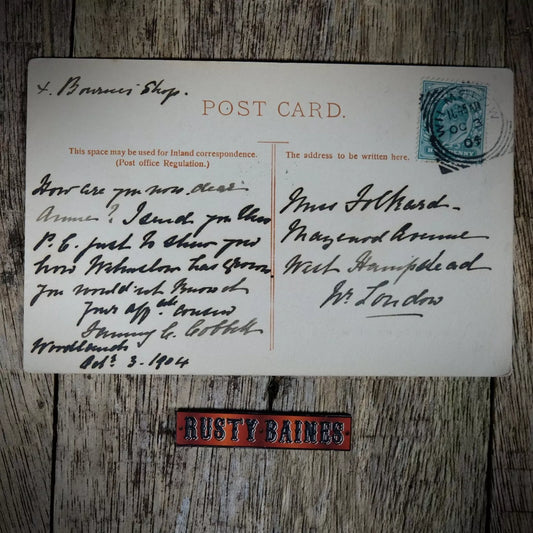 x. Bournes Shop.
POST CARD.
This space may be used for Inland correspondence.
(Post office Regulation.)
How are you now, dear
Annie? I send you this
P.C. just to show you
how Wilmslow has grown
you wouldn't know it
Your affate cousin
Fanny C. Cobbett
Woodlands
Octr 3. 1904
The address to be written here.
Miss Folkard
Avenue
West Hampstead
Nr London
WILMSLOW
OC 3
RUSTY·BAINES